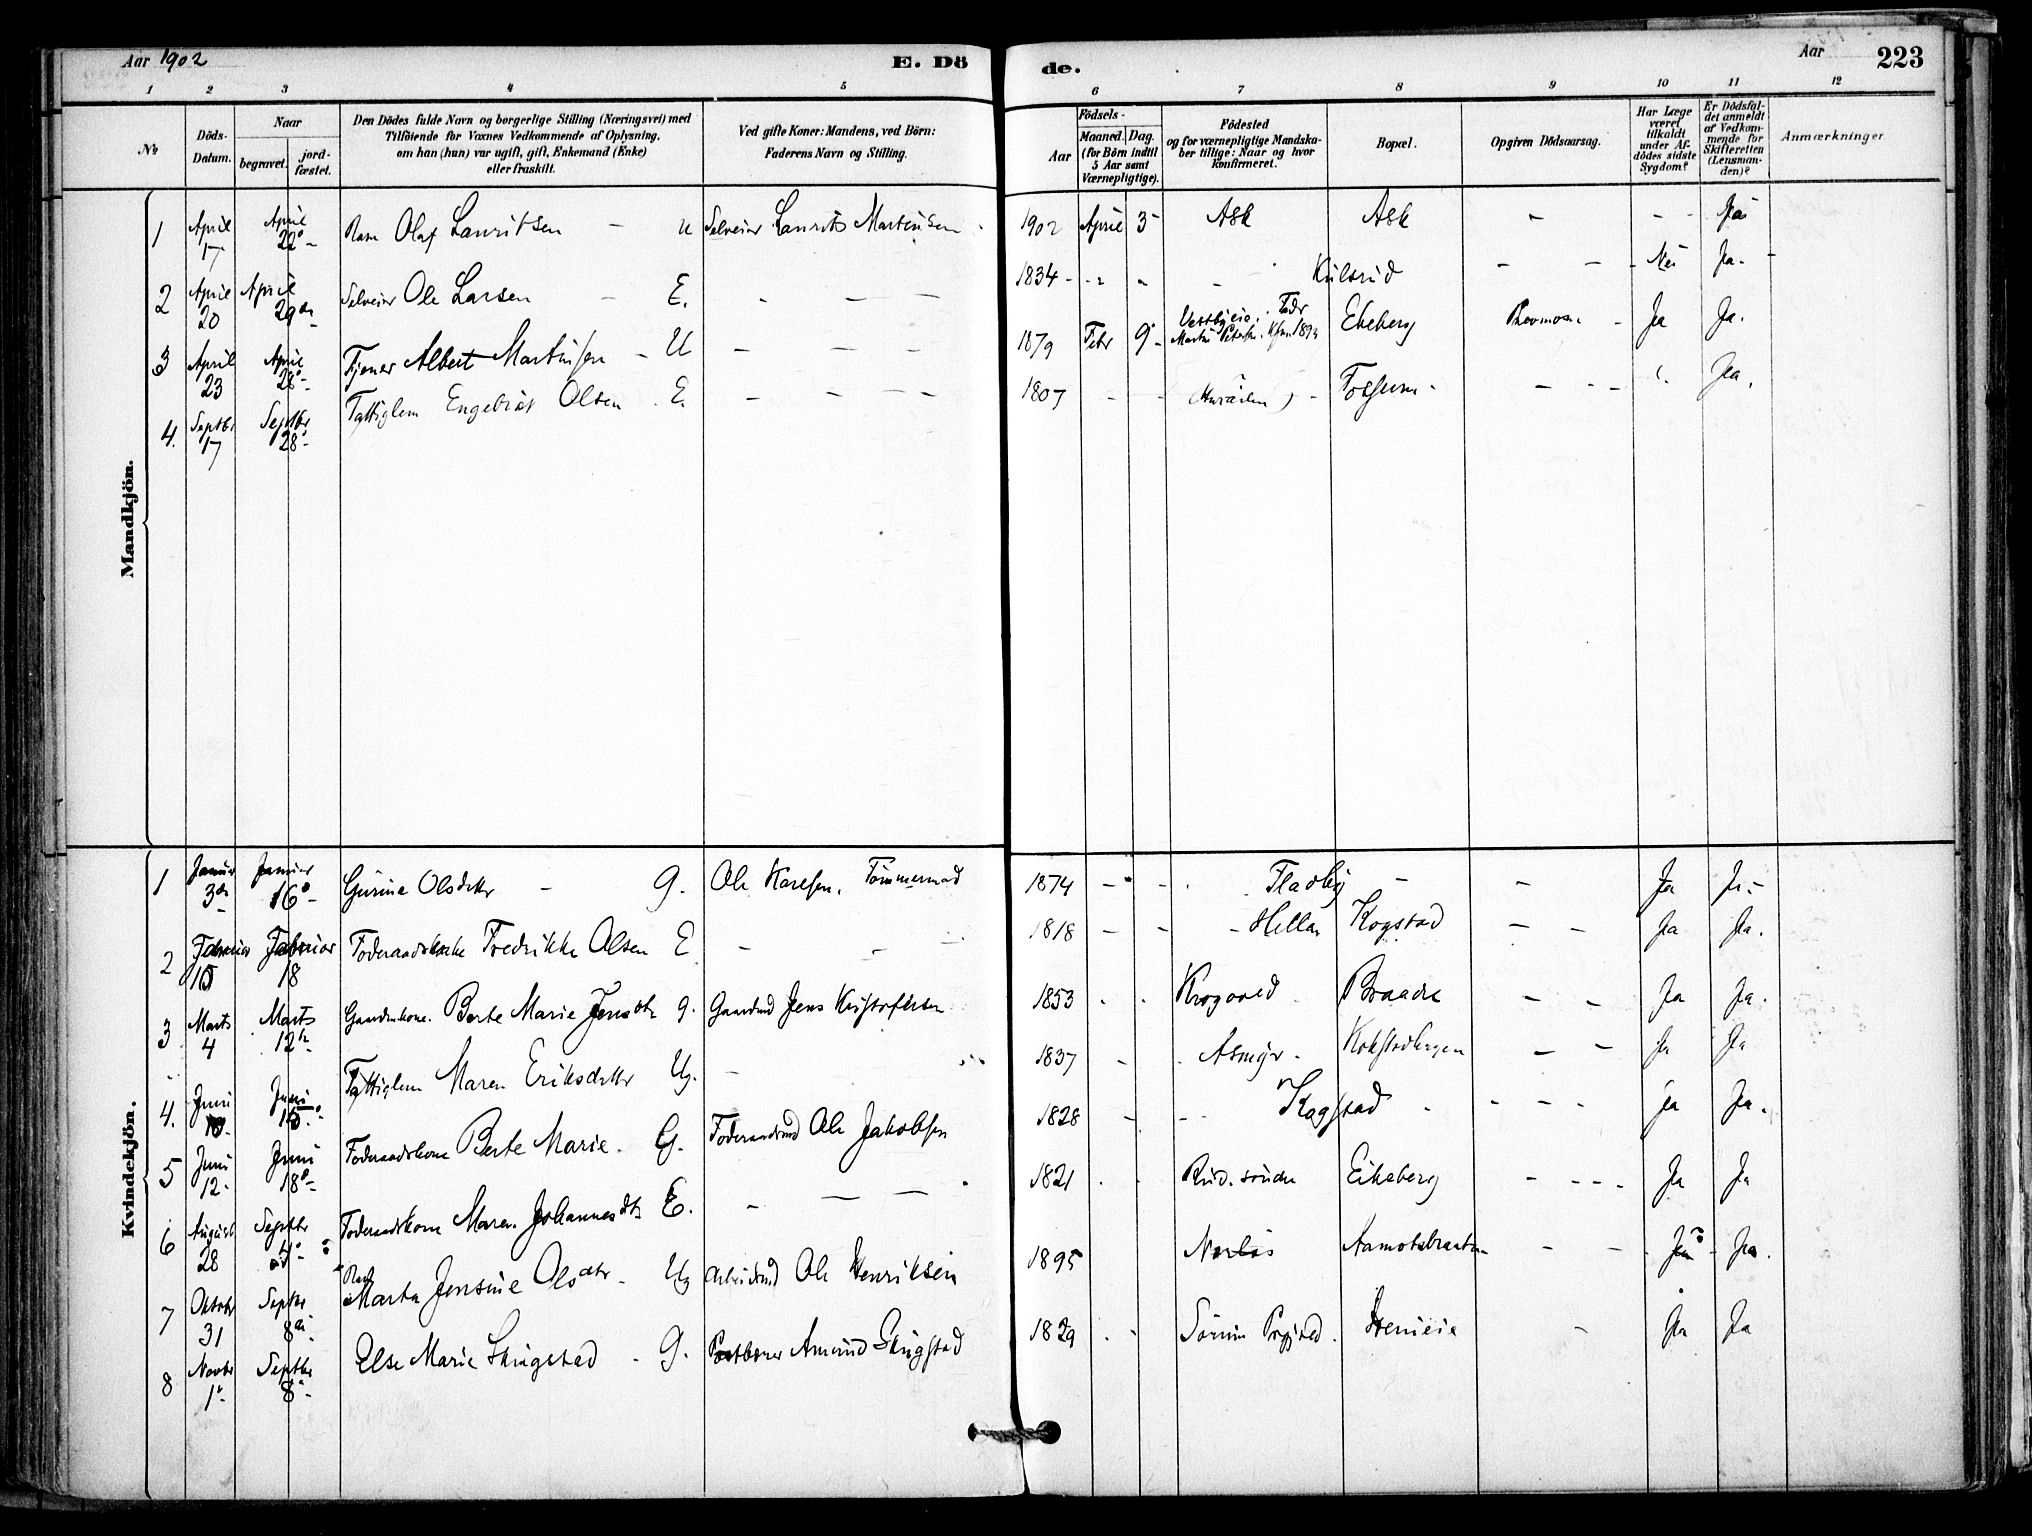 Aar 1902
E. Dö
de.
Aar
223
1 2 3 4 5 6 7 8 9 10 11 12
No
Döds-
Datum.
Naar
begravet.
jord-
fæstet.
Den Dödes fulde Navn og borgerlige Stilling (Næringsvei) med
Tilföiende for Voxnes Vedkommende af Oplysning,
om han (hun) var ugift, gift, Enkemand (Enke)
eller fraskilt.
Ved gifte Koner: Mandens, ved Börn:
Faderens Navn og Stilling.
Födsels-
Aar
Maaned.
Dag.
(for Börn indtil
5 Aar samt
Værnepligtige).
Födested
og for værnepligtige Mandska-
ber tillige: Naar og hvor
konfirmeret.
Bopæl.
Opgiven Dödsaarsag.
Har Læge
været
tilkaldt
under Af-
dödes sidste
Sygdom?
Er Dödsfal-
det anmeldt
af Vedkom-
mende for
Skifteretten
(Lensman-
den)?
Anmærkninger
Mandkjön.
1 April 17 April 22 Olaf Lauritsen - u Selveier Laurits Martinsen 1902 April 3 Ask Ask - - Ja
2 April 20 April 29 Selveier Ole Larsen - E. - - - 1834 - Kulsrud - - Nei Ja.
3 April 23 April 28 Tjener Albert Martinsen - U - - - 1879 Febr 9 Ekeberg Ja Ja.
4. Septbr 17 Septbr 28 Fattiglem Engebret Olsen E. - - - 1807 - - Fossum - - - Ja.
Kvindekjön.
1 Januar 3 Januar 16 Gurine Olsdttr - G. Ole Karlsen. Tömmermad 1874 - - Fladby - - Ja Ja
2 Februar 15 Februar 18 Foderaadsenke Fredrikke Olsen E - - 1818 - - Hellen Kogstad - - Ja Ja.
3 Marts 4 Marts 12 Gaardmkone. Berte Marie Jensdtr G. Gaardmd Jens Kristofersen 1853 Krogvold Braade - - Ja Ja.
4. Juni Juni Fattiglem Maren Eriksdttr Ug. - 1837 - Asmyr - Kokstadhagen - - Ja Ja
5 Juni 12 Juni 18 Foderaadskone Berte Marie. G. Foderaadmd Ole Jakobsen 1828 - - Kogstad - - - Ja Ja.
6 August 28 Septbr Foderaadskone Maren Johannesdtr E. - - - 1821 Rud. söndre Eikeberg - - - Ja Ja
7 Oktobr 31 Septbr 8 Marta Jensine Olsdtr - Ug Arbeidsmd Ole Henriksen 1895 Nerlös Aamotsbraaten - - Ja.
8 Novbr 1 Septbr 8 Else Marie Skugstad - G. Postbærer Amund Skugstad 1829 Sörum - Ja Ja